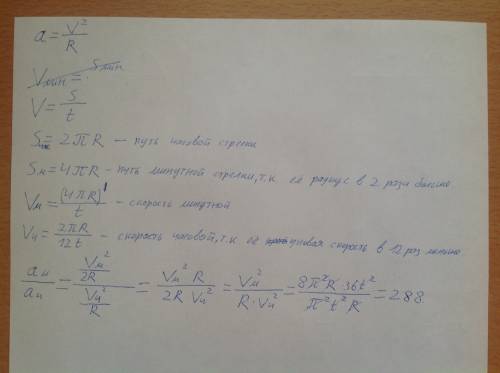 a = V²/R
Vмин = Sмин
V = S/t
Sч = 2πR — путь часовой стрелки
Sм = 4πR - путь минутной стрелки, т.к. её радиус в 2 раза больше.
Vм = (4πR)'/t - скорость минутной
Vч = 2πR/12t - скорость часовой, т.к. её угловая скорость в 12 раз меньше.
aм/aч = (Vм²/2R)/(Vч²/R) = Vм² R/2R Vч² = Vм²/R·Vч² = 8π²R 36t²/π²t²R = 288.